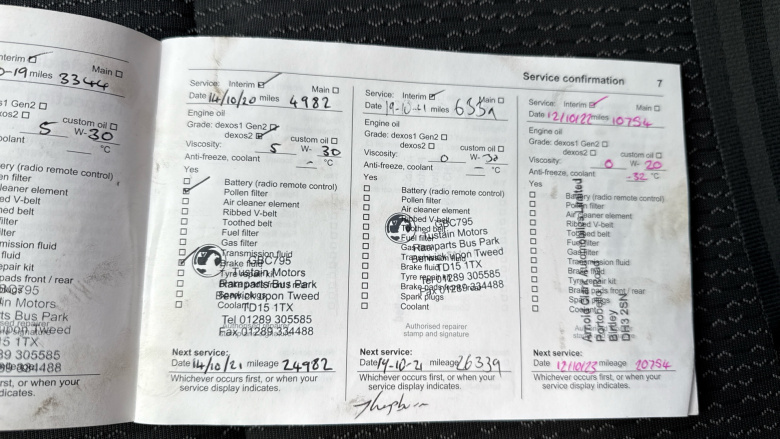 nterim
Main
0-19 miles 3344
s1 Gen2
custom oil
5 W-30
°C
Service confirmation 7
Service: Interim Main
Date 14/10/20 miles 4982
Engine oil
Grade: dexos1 Gen2
dexos2 custom oil
Viscosity: 5 W- 30
Anti-freeze, coolant - °C
Yes
Battery (radio remote control)
Pollen filter
Air cleaner element
Ribbed V-belt
Toothed belt
Fuel filter
Gas filter
Transmission fluid
Brake fluid
Tyre repair kit
Brake pads front / rear
Spark plugs
Coolant
GBC795
Tustain Motors
Ramparts Bus Park
Berwick upon Tweed
TD15 1TX
Tel 01289 305585
Fax 01289 334488
Next service:
Date 14/10/21 mileage 24982
Whichever occurs first, or when your
service display indicates.
Service: Interim Main
Date 19-10-21 miles
Engine oil
Grade: dexos1 Gen2
dexos2 custom oil
Viscosity: 0 W- 30
Anti-freeze, coolant - °C
Yes
Battery (radio remote control)
Pollen filter
Air cleaner element
Ribbed V-belt
Toothed belt
Fuel filter
Gas filter
Transmission fluid
Brake fluid
Tyre repair kit
Brake pads front / rear
Spark plugs
Coolant
GBC795
Tustain Motors
Ramparts Bus Park
Berwick upon Tweed
TD15 1TX
Tel 01289 305585
Fax 01289
Authorised repairer
stamp and signature
Next service:
mileage 26339
Whichever occurs first, or when your
service display indicates.
Service: Interim Main
Date 12/10/22 miles 10754
Engine oil
Grade: dexos1 Gen2
dexos2 custom oil
Viscosity: 0 W- 20
Anti-freeze, coolant -32 °C
Yes
Battery (radio remote control)
Pollen filter
Air cleaner element
Ribbed V-belt
Toothed belt
Fuel filter
Gas filter
Transmission fluid
Brake fluid
Tyre repair kit
Brake pads front / rear
Spark plugs
Coolant
Arnold Clark Automobiles Limited
Portobello Road
Birtley
DH3 2SN
Next service:
Date 12/10/23 mileage 20754
Whichever occurs first, or when your
service display indicates.